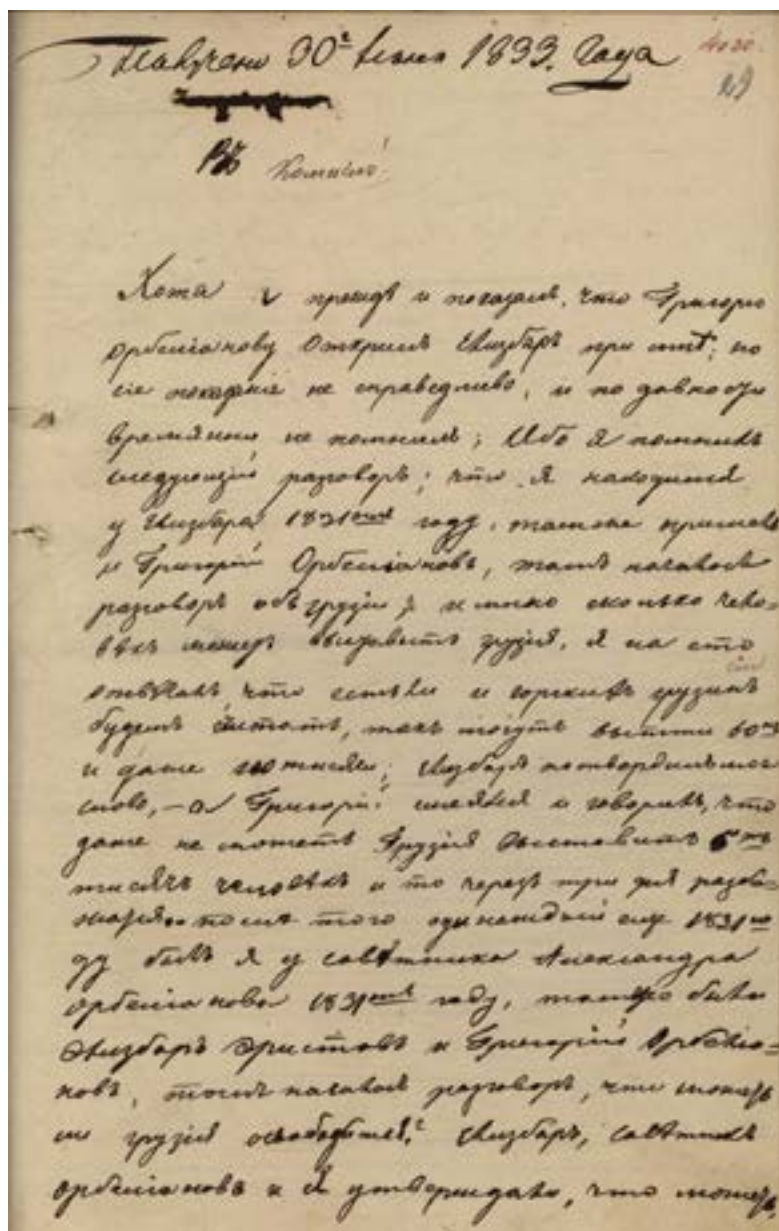 Получено 30го Июня 1833. Года
29
Въ Комисію!
Хотя и прежде и показалъ, что Григорію
Орбеліанову открылъ Елизбаръ при мнѣ; но
сіе показаніе не справедливо, и по давности
времянни не помнилъ; Ибо я помнилъ
следующій разговоръ; что я находился
у Елизбара 1831омъ году, тамже пришелъ
и Григорій Орбеліановъ, тамъ началось
разговоръ объ грузіи; имяно сколько чело-
векъ можетъ выставить грузія, я на это
отвѣчалъ, что естьли и горскихъ грузинъ
будемъ считать, такъ могутъ выттти 60
и даже тысячи; Елизбаръ потвердилъ мое
слово, – а Григорій смеялся и говорилъ, что
даже не можетъ Грузія выставить 5ть
тысячъ человѣкъ и то черезъ три дня разбе-
жатся. после того одинаждый еще 1831го
ду былъ я у совѣтника Александра
Орбеліанова 1831омъ году, тамже были
Елизбаръ Эристовъ и Григорій Орбеліа-
новъ, тамъ началось разговоръ, что можетъ
ли грузія освободится? Елизбаръ, совѣтникъ
Орбеліановъ и я утверждали, что можетъ,